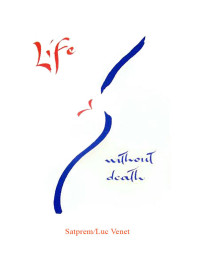 Life
without
death
Satprem/Luc Venet